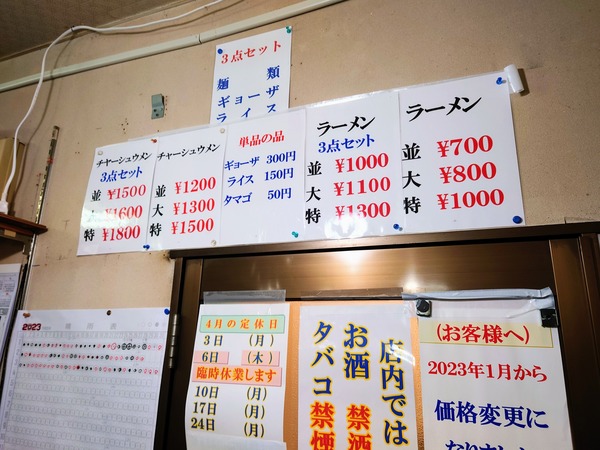 3点セット
麺類
ギョーザ
ライス
チャーシュウメン
3点セット
並 ¥1500
大 ¥1600
特 ¥1800
チャーシュウメン
並 ¥1200
大 ¥1300
特 ¥1500
単品の品
ギョーザ 300円
ライス 150円
タマゴ 50円
ラーメン
3点セット
並 ¥1000
大 ¥1100
特 ¥1300
ラーメン
並 ¥700
大 ¥800
特 ¥1000
2023
4月の定休日
3日 (月)
6日 (木)
臨時休業します
10日 (月)
17日 (月)
24日 (月)
店内では
お酒 禁酒
タバコ 禁煙
(お客様へ)
2023年1月から
価格変更に
なりました